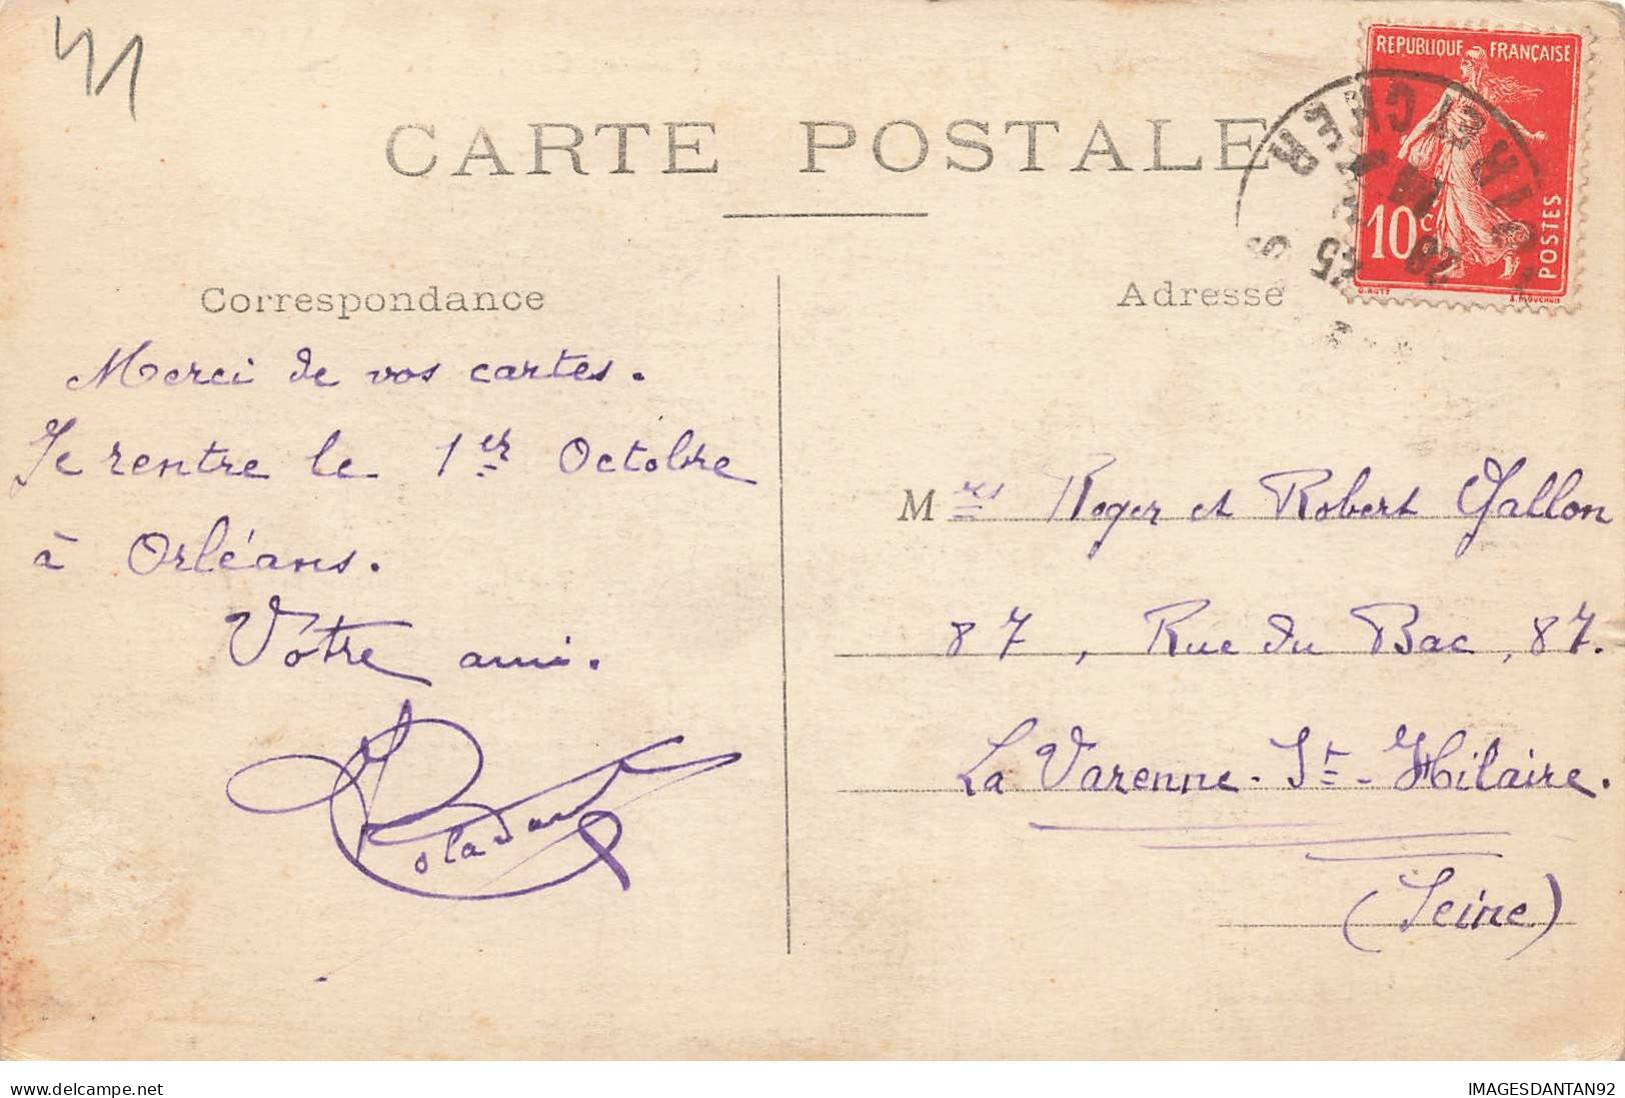 41
CARTE POSTALE
REPUBLIQUE FRANÇAISE
10c
POSTES
ET CHER
Correspondance
Adresse
Merci de vos cartes.
Je rentre le 1er Octobre
à Orléans.
Votre ami.
Mrs Roger et Robert Gallon
87, Rue du Bac, 87.
La Varenne-St-Hilaire.
(Seine)
www.delcampe.net
IMAGESDANTAN92